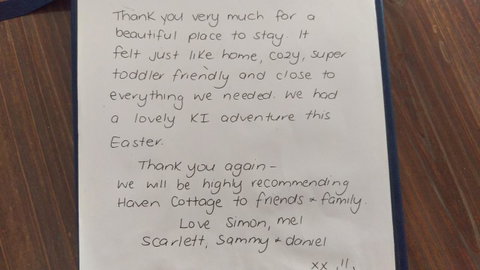 Thank you very much for a
beautiful place to stay. It
felt just like home, cozy, super
toddler friendly and close to
everything we needed. We had
a lovely KI adventure this
Easter.
Thank you again -
We will be highly recommending
Haven Cottage to friends & family.
Love Simon, Mel
Scarlett, Sammy & daniel
xx